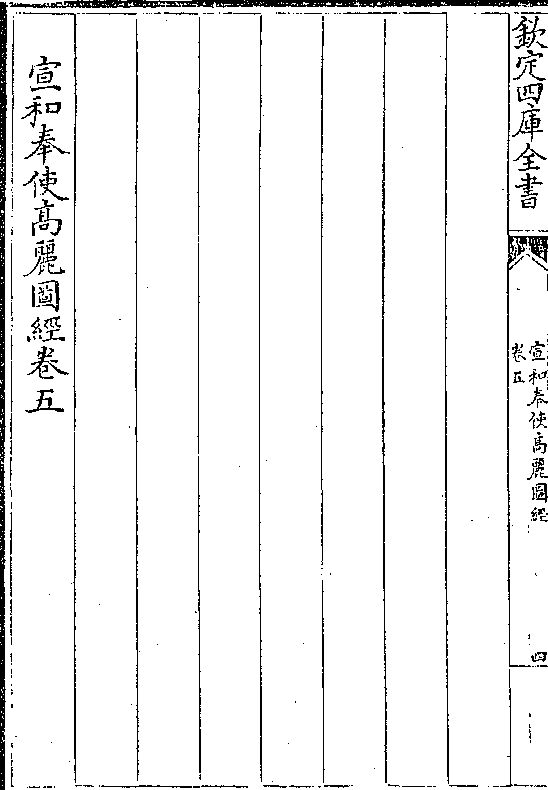 欽定四庫全書
宣和奉使高麗圖經
卷五
四
宣和奉使高麗圖經卷五